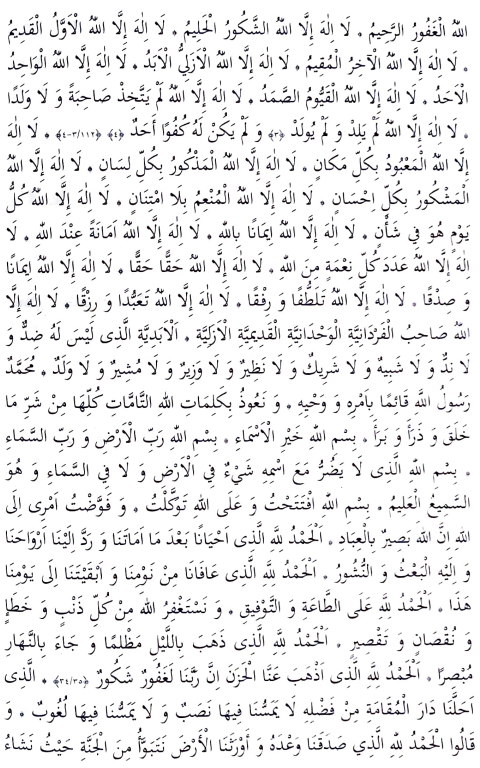 اللهُ الْغَفُورُ الرَّحِيمُ ۰ لَا اِلٰهَ اِلَّا اللهُ الشَّكُورُ الْحَلِيمُ ۰ لَا اِلٰهَ اِلَّا اللهُ الْاَوَّلُ الْقَدِيمُ
۰ لَا اِلٰهَ اِلَّا اللهُ الْآخِرُ الْمُقِيمُ ۰ لَا اِلٰهَ اِلَّا اللهُ الْاَزَلِيُّ الْاَبَدُ ۰ لَا اِلٰهَ اِلَّا اللهُ الْوَاحِدُ
الْاَحَدُ ۰ لَا اِلٰهَ اِلَّا اللهُ الْقَيُّومُ الصَّمَدُ ۰ لَا اِلٰهَ اِلَّا اللهُ لَمْ يَتَّخِذْ صَاحِبَةً وَ لَا وَلَدًا
۰ لَا اِلٰهَ اِلَّا اللهُ لَمْ يَلِدْ وَ لَمْ يُولَدْ ﴿٣﴾ وَ لَمْ يَكُنْ لَهُ كُفُوًا اَحَدٌ ﴿٤﴾ ﴿١١٢/٣-٤﴾ ۰ لَا اِلٰهَ
اِلَّا اللهُ الْمَعْبُودُ بِكُلِّ مَكَانٍ ۰ لَا اِلٰهَ اِلَّا اللهُ الْمَذْكُورُ بِكُلِّ لِسَانٍ ۰ لَا اِلٰهَ اِلَّا اللهُ
الْمَشْكُورُ بِكُلِّ اِحْسَانٍ ۰ لَا اِلٰهَ اِلَّا اللهُ الْمُنْعِمُ بِلَا امْتِنَانٍ ۰ لَا اِلٰهَ اِلَّا اللهُ كُلُّ
يَوْمٍ هُوَ فِي شَأْنٍ ۰ لَا اِلٰهَ اِلَّا اللهُ اِيمَانًا بِاللهِ ۰ لَا اِلٰهَ اِلَّا اللهُ اَمَانَةً عِنْدَ اللهِ ۰ لَا
اِلٰهَ اِلَّا اللهُ عَدَدَ كُلِّ نِعْمَةٍ مِنَ اللهِ ۰ لَا اِلٰهَ اِلَّا اللهُ حَقًّا حَقًّا ۰ لَا اِلٰهَ اِلَّا اللهُ اِيمَانًا
وَ صِدْقًا ۰ لَا اِلٰهَ اِلَّا اللهُ تَلَطُّفًا وَ رِفْقًا ۰ لَا اِلٰهَ اِلَّا اللهُ تَعَبُّدًا وَ رِزْقًا ۰ لَا اِلٰهَ اِلَّا
اللهُ صَاحِبُ الْفَرْدَانِيَّةِ الْوَحْدَانِيَّةِ الْقَدِيمِيَّةِ الْاَزَلِيَّةِ ۰ اَلْاَبَدِيَّةِ الَّذِى لَيْسَ لَهُ ضِدٌّ وَ
لَا نِدٌّ وَ لَا شَبِيهٌ وَ لَا شَرِيكٌ وَ لَا نَظِيرٌ وَ لَا وَزِيرٌ وَ لَا مُشِيرٌ وَ لَا وَلَدٌ ۰ مُحَمَّدٌ
رَسُولُ اللهِ قَائِمًا بِاَمْرِهِ وَ وَحْيِهِ ۰ وَ نَعُوذُ بِكَلِمَاتِ اللهِ التَّامَّاتِ كُلِّهَا مِنْ شَرِّ مَا
خَلَقَ وَ ذَرَأَ وَ بَرَأَ ۰ بِسْمِ اللهِ خَيْرِ الْاَسْمَاءِ ۰ بِسْمِ اللهِ رَبِّ الْاَرْضِ وَ رَبِّ السَّمَاءِ
۰ بِسْمِ اللهِ الَّذِى لَا يَضُرُّ مَعَ اسْمِهِ شَيْءٌ فِي الْاَرْضِ وَ لَا فِي السَّمَاءِ وَ هُوَ
السَّمِيعُ الْعَلِيمُ ۰ بِسْمِ اللهِ افْتَتَحْتُ وَ عَلَى اللهِ تَوَكَّلْتُ ۰ وَ فَوَّضْتُ اَمْرِى اِلَى
اللهِ اِنَّ اللهَ بَصِيرٌ بِالْعِبَادِ ۰ اَلْحَمْدُ لِلّٰهِ الَّذِى اَحْيَانَا بَعْدَ مَا اَمَاتَنَا وَ رَدَّ اِلَيْنَا اَرْوَاحَنَا
وَ اِلَيْهِ الْبَعْثُ وَ النُّشُورُ ۰ اَلْحَمْدُ لِلّٰهِ الَّذِى عَافَانَا مِنْ نَوْمِنَا وَ اَبْقَيْتَنَا اِلَى يَوْمِنَا
هَذَا ۰ اَلْحَمْدُ لِلّٰهِ عَلَى الطَّاعَةِ وَ التَّوْفِيقِ ۰ وَ نَسْتَغْفِرُ اللهَ مِنْ كُلِّ ذَنْبٍ وَ خَطَإٍ
وَ نُقْصَانٍ وَ تَقْصِيرٍ ۰ اَلْحَمْدُ لِلّٰهِ الَّذِى ذَهَبَ بِاللَّيْلِ مَظْلِمًا وَ جَاءَ بِالنَّهَارِ
مُبْصِرًا ۰ اَلْحَمْدُ لِلّٰهِ الَّذِى اَذْهَبَ عَنَّا الْحَزَنَ اِنَّ رَبَّنَا لَغَفُورٌ شَكُورٌ ﴿٣٤/٣٥﴾ ۰ الَّذِى
اَحَلَّنَا دَارَ الْمُقَامَةِ مِنْ فَضْلِهِ لَا يَمَسُّنَا فِيهَا نَصَبٌ وَ لَا يَمَسُّنَا فِيهَا لُغُوبٌ ۰ وَ
قَالُوا الْحَمْدُ لِلّٰهِ الَّذِي صَدَقَنَا وَعْدَهُ وَ أَوْرَثَنَا الْأَرْضَ نَتَبَوَّأُ مِنَ الْجَنَّةِ حَيْثُ نَشَاءُ